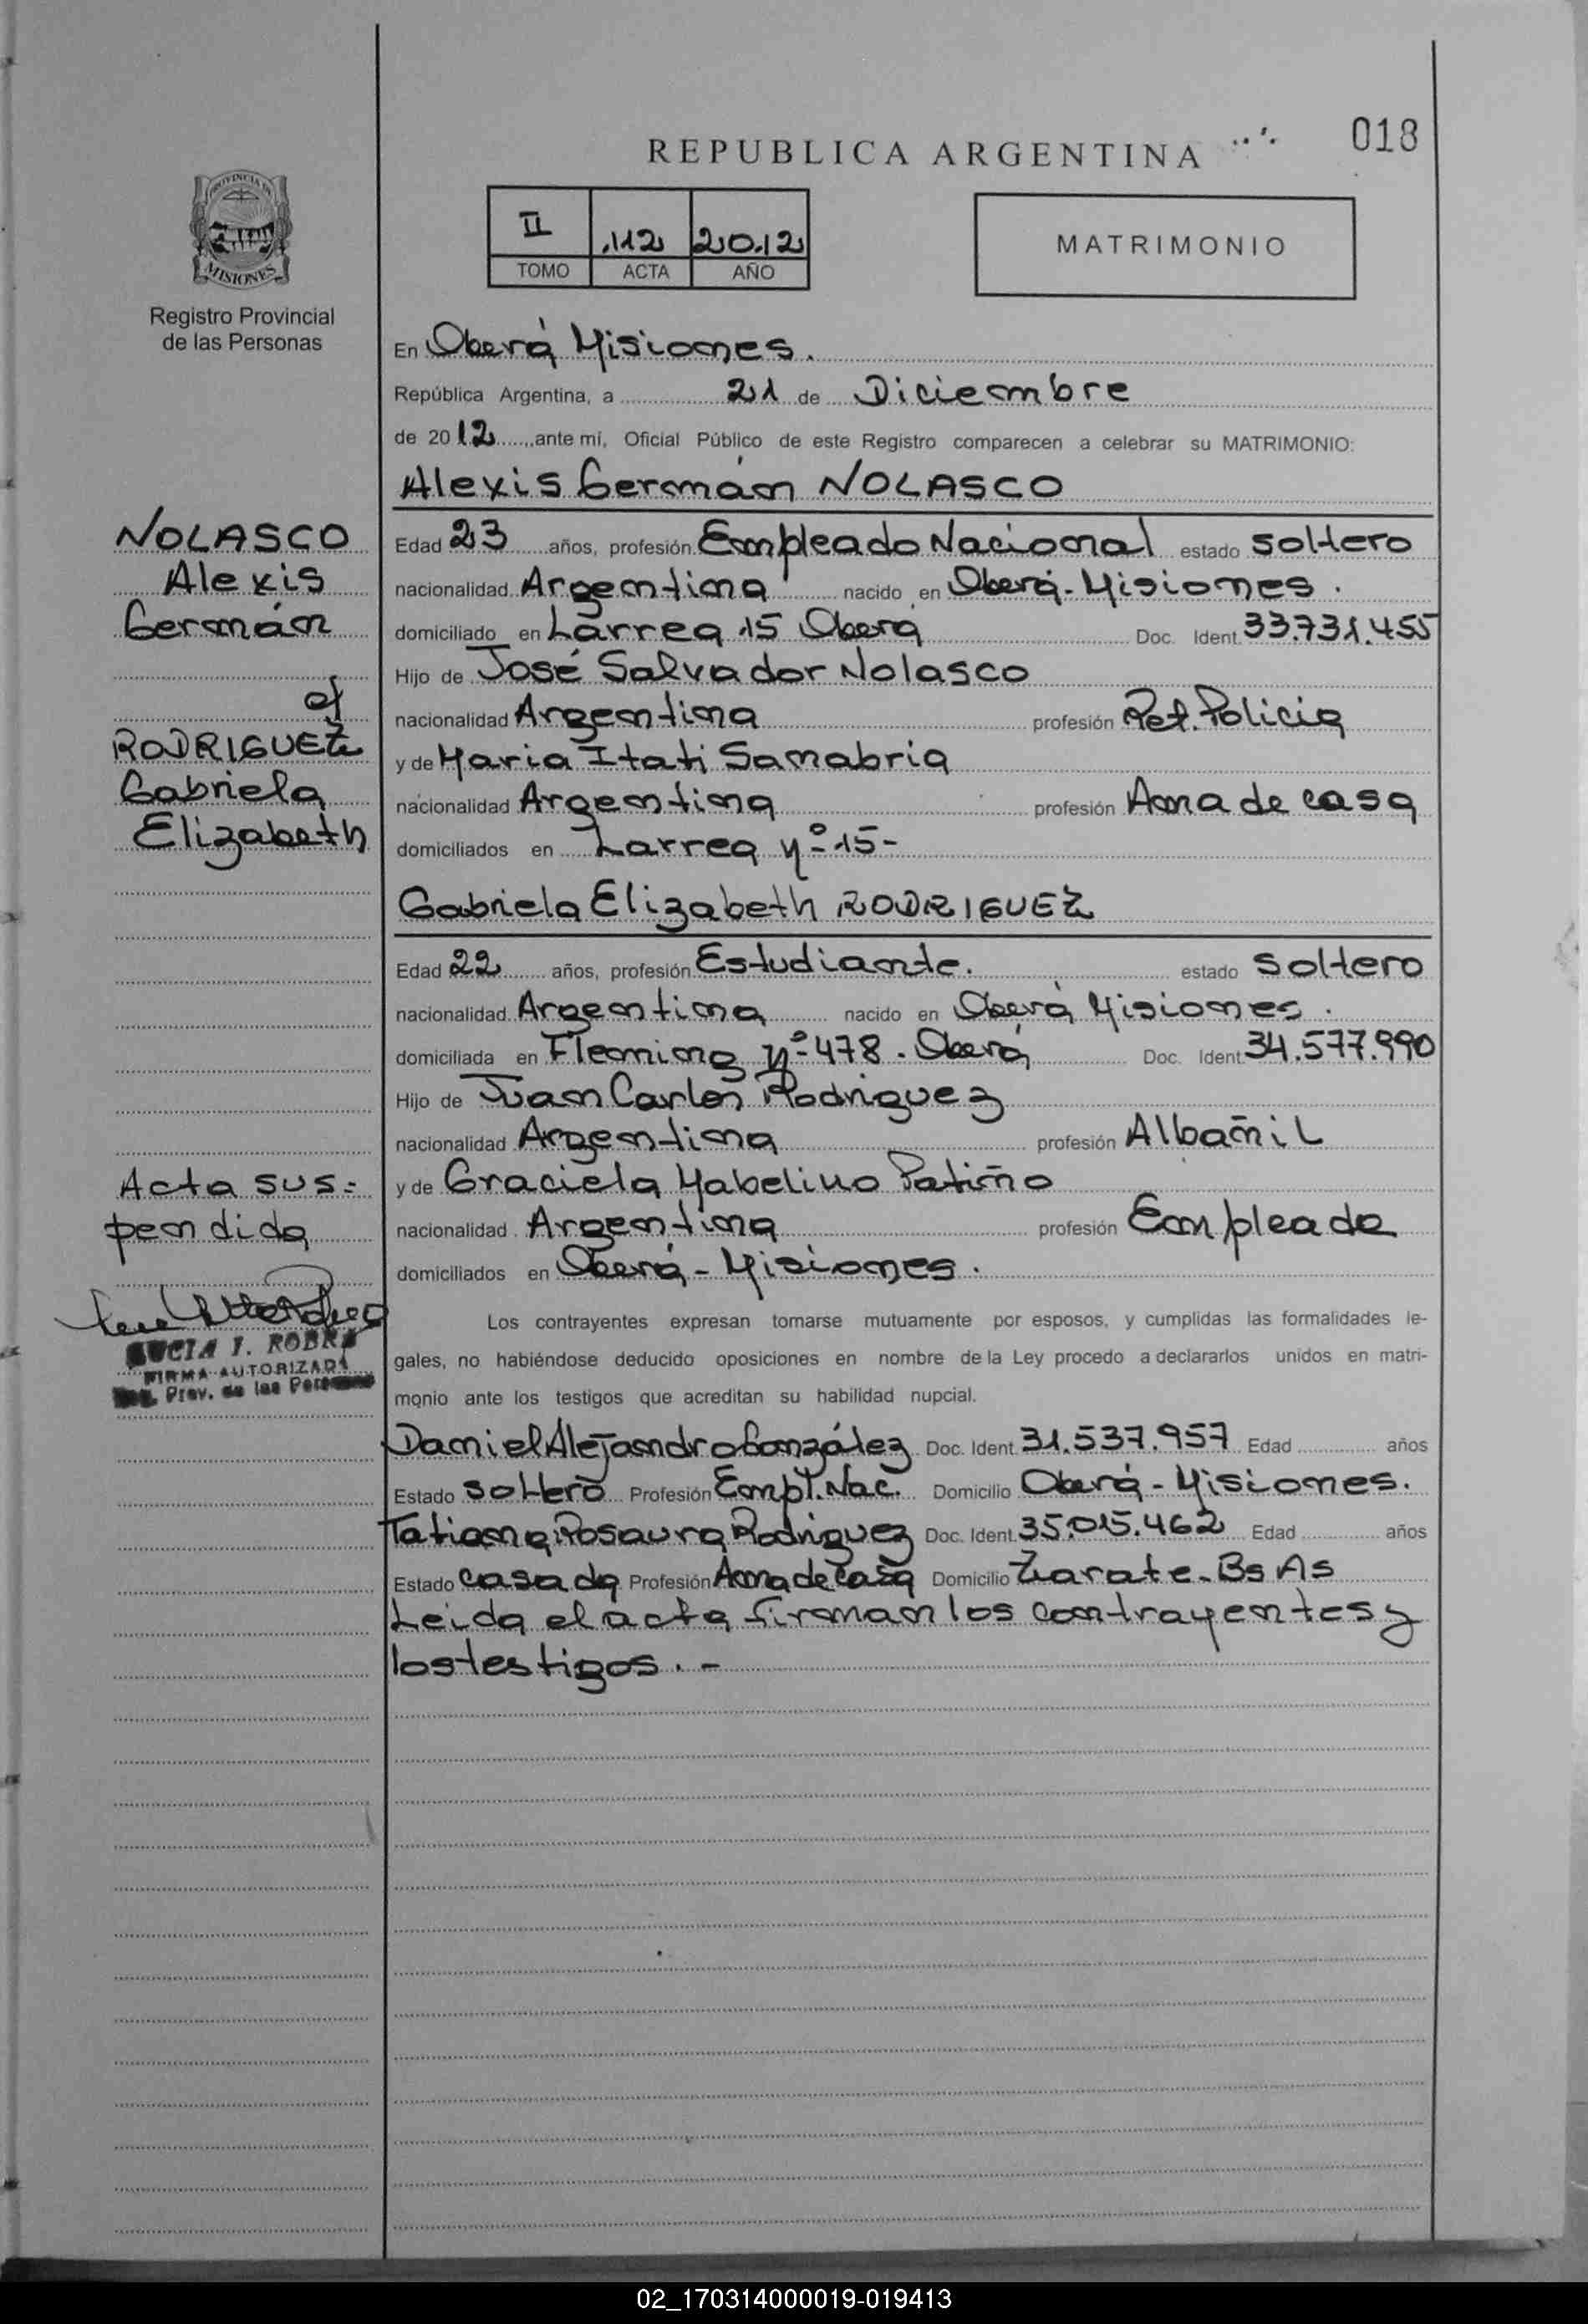 018
REPUBLICA ARGENTINA
PROVINCIA DE
MISIONES
Registro Provincial
de las Personas
II 112 2012
TOMO ACTA AÑO
MATRIMONIO
En Oberá Misiones.
República Argentina, a 21 de Diciembre
de 2012, ante mí, Oficial Público de este Registro comparecen a celebrar su MATRIMONIO:
Alexis Germán NOLASCO
Edad 23 años, profesión Empleado Nacional estado soltero
nacionalidad Argentina nacido en Oberá-Misiones.
domiciliado en Larrea 15 Oberá Doc. Ident. 33.731.455
Hijo de José Salvador Nolasco
nacionalidad Argentina profesión Ret. Policia
y de Maria Itati Sanabria
nacionalidad Argentina profesión Ama de casa
domiciliados en Larrea Nº 15-
Gabriela Elizabeth RODRIGUEZ
Edad 22 años, profesión Estudiante. estado Soltero
nacionalidad Argentina nacido en Oberá Misiones.
domiciliada en Fleming Nº 478. Oberá Doc. Ident. 34.577.990
Hijo de Juan Carlos Rodriguez
nacionalidad Argentina profesión Albañil
y de Graciela Mabelino Patiño
nacionalidad Argentina profesión Empleada
domiciliados en Oberá-Misiones.
Los contrayentes expresan tomarse mutuamente por esposos, y cumplidas las formalidades le-
gales, no habiéndose deducido oposiciones en nombre de la Ley procedo a declararlos unidos en matri-
monio ante los testigos que acreditan su habilidad nupcial.
Daniel Alejandro González Doc. Ident. 31.537.957 Edad años
Estado soltero Profesión Empl. Nac. Domicilio Oberá-Misiones.
Tatiana Rosaura Rodriguez Doc. Ident. 35.015.462 Edad años
Estado casada Profesión Ama de Casa Domicilio Zarate-Bs As
Leida el acta firman los contrayentes y
los testigos.-
NOLASCO
Alexis
Germán
c/
RODRIGUEZ
Gabriela
Elizabeth
Acta sus-
pendida
LUCIA I. ROBRA
FIRMA AUTORIZADA
Reg. Prov. de las Personas
02_170314000019-019413